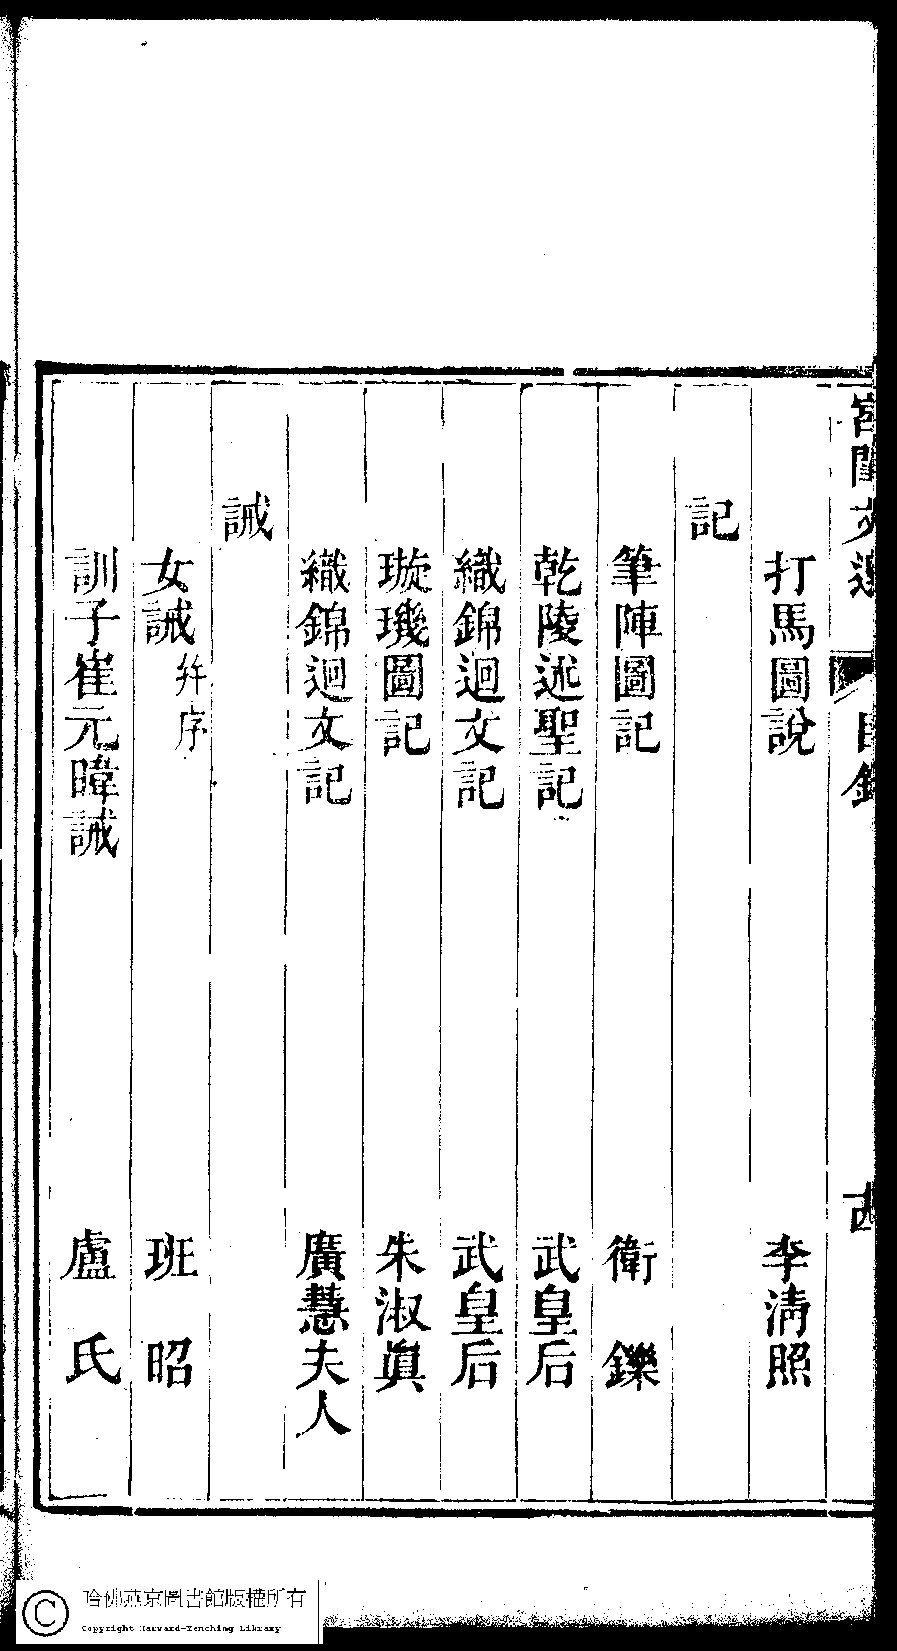 宮閨文選
目錄
打馬圖說 李淸照
記
筆陣圖記 衛鑠
乾陵述聖記 武皇后
織錦迴文記 武皇后
璇璣圖記 朱淑眞
織錦迴文記 廣慧夫人
誡
女誡 幷序 班昭
訓子崔元暐誡 盧氏
哈佛燕京圖書館版權所有
Copyright Harvard-Yenching Library